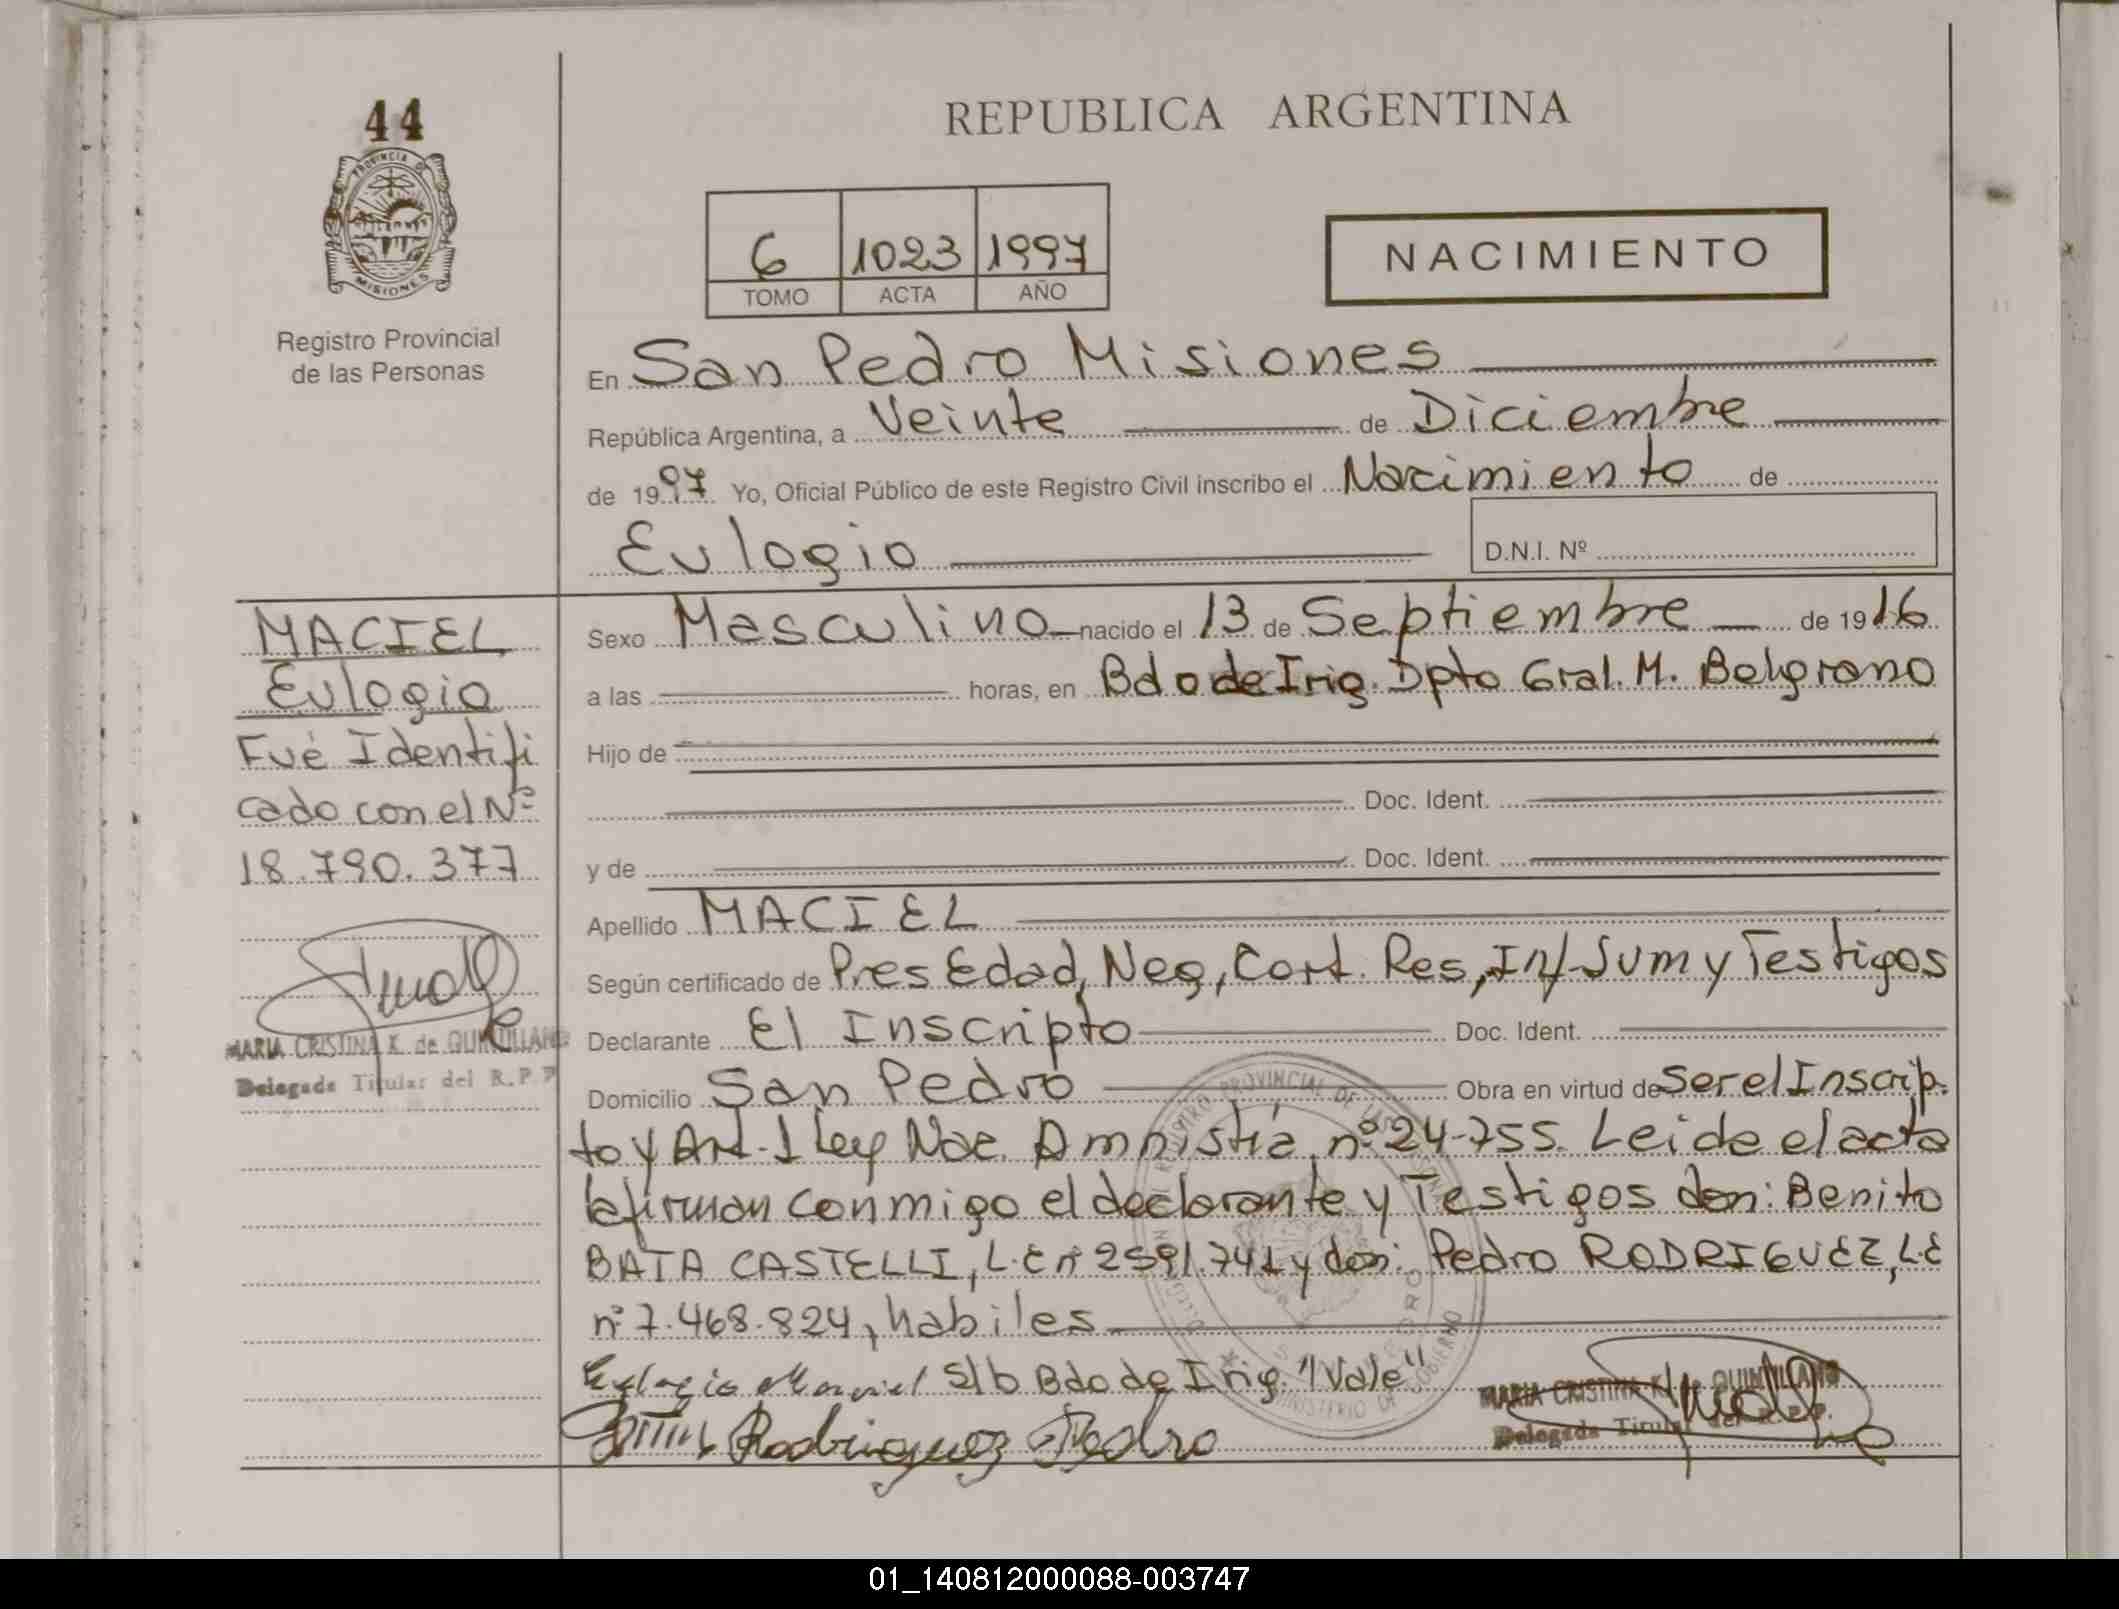 44
PROVINCIA DE
MISIONES
Registro Provincial
de las Personas
REPUBLICA ARGENTINA
6 1023 1997
TOMO ACTA AÑO
NACIMIENTO
En San Pedro Misiones
República Argentina, a Veinte de Diciembre
de 1997 Yo, Oficial Público de este Registro Civil inscribo el Nacimiento de
Eulogio D.N.I. Nº
MACIEL
Eulogio
Fué Identifi
cado con el Nº
18.790.377
MARIA CRISTINA K. de QUINTILLANO
Delegada Titular del R.P.P
Sexo Masculino nacido el 13 de Septiembre de 1916
a las horas, en Bdo de Irig. Dpto Gral. M. Belgrano
Hijo de
Doc. Ident.
y de Doc. Ident.
Apellido MACIEL
Según certificado de Pres Edad, Neg, Cort. Res, Inf Sum y Testigos
Declarante El Inscripto Doc. Ident.
Domicilio San Pedro Obra en virtud de Ser el Inscrip.
to y Art. 1 Ley Nac. Amnistía nº 24-755. Leida el acta
la firman conmigo el declarante y Testigos don: Benito
BATA CASTELLI, L.E nº 2591.741 y don: Pedro RODRIGUEZ, L.E
nº 7.468.824, habiles
Eulogio Maciel S/b Bdo de Irig. "Vale"
Rodriguez Pedro
MARIA CRISTINA K. de QUINTILLANO
Delegada Titular del R.P.P.
REGISTRO PROVINCIAL DE LAS PERSONAS
SAN PEDRO
MINISTERIO DE GOBIERNO
01_140812000088-003747